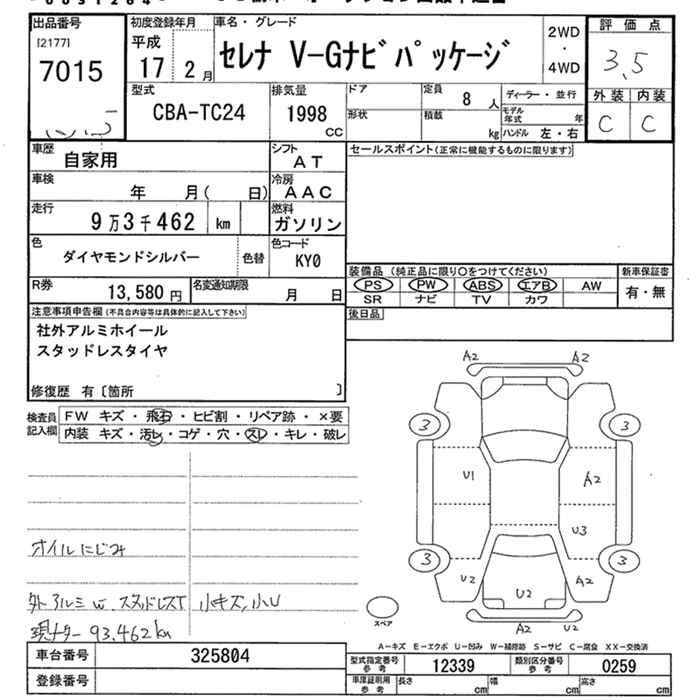 出品番号 初度登録年月 車名・グレード 評価点
[2177] 平成
7015 17 2月 セレナ V-Gナビパッケージ 2WD・4WD 3,5
型式 排気量 ドア 定員 8人 ディーラー・並行 外装 内装
CBA-TC24 1998 CC 形状 積載 kg モデル年式 年 C C
ハンドル 左・右
車歴 自家用 シフト AT セールスポイント(正常に機能するものに限ります)
車検 年 月( 日) 冷房 AAC
走行 9万3千462 km 燃料 ガソリン
色 ダイヤモンドシルバー 色替 色コード KY0
装備品(純正品に限り〇をつけてください) 新車保証書
R券 13,580円 名変通知期限 月 日 PS PW ABS エアB AW 有・無
SR ナビ TV カワ
注意事項申告欄(不具合内容等は具体的に記入して下さい) 後日品
社外アルミホイール
スタッドレスタイヤ
修復歴 有〔箇所 〕
検査員記入欄 FW キズ・飛石・ヒビ割・リペア跡・×要
内装 キズ・汚レ・コゲ・穴・スレ・キレ・破レ
A2 A2
3 3
U1 A2
U3
オイルにじみ
3 3
U2 U2 A2
外アルミ W.スタッドレスT 小キズ,小U
スペア A2 U2
現メーター 93,462km
A-キズ E-エクボ U-凹み W-補修跡 S-サビ C-腐食 XX-交換済
車台番号 325804 型式指定番号参考 12339 類別区分番号参考 0259
登録番号 車庫証明用参考 長さ cm 幅 cm 高さ cm